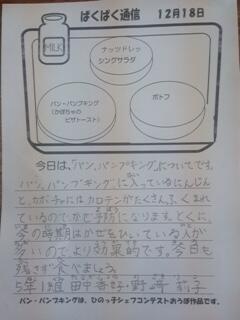 ぱくぱく通信 12月18日
MILK
ナッツドレッ
シングサラダ
パン・パンプキング
(かぼちゃの
ピザトースト)
ポトフ
今日は、「パン、パンプキング」についてです。
パン、パンプキングに入っているにんじん
と、カボチャにはカロテンがたくさんふくまれ
ているのでかぜ予防になります。とくに、
今の時期はかぜをひいている人が
多いのでより効果的です。今日も
残さず食べましょう。
5年1組 田中 香好・野崎 莉子
パン・パンプキングは、ひのっ子シェフコンテストおうぼ作品です。